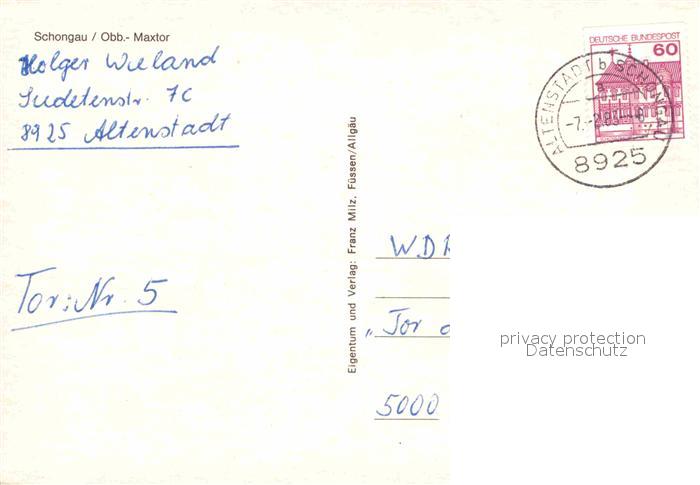 Schongau / Obb.- Maxtor
Holger Wieland
Sudetenstr. 7c
8925 Altenstadt
DEUTSCHE BUNDESPOST
60
ALTENSTADT b SCHONGAU
8925
Eigentum und Verlag: Franz Milz, Füssen/Allgäu
Tor: Nr. 5
WDR
„Tor d
5000
privacy protection
Datenschutz